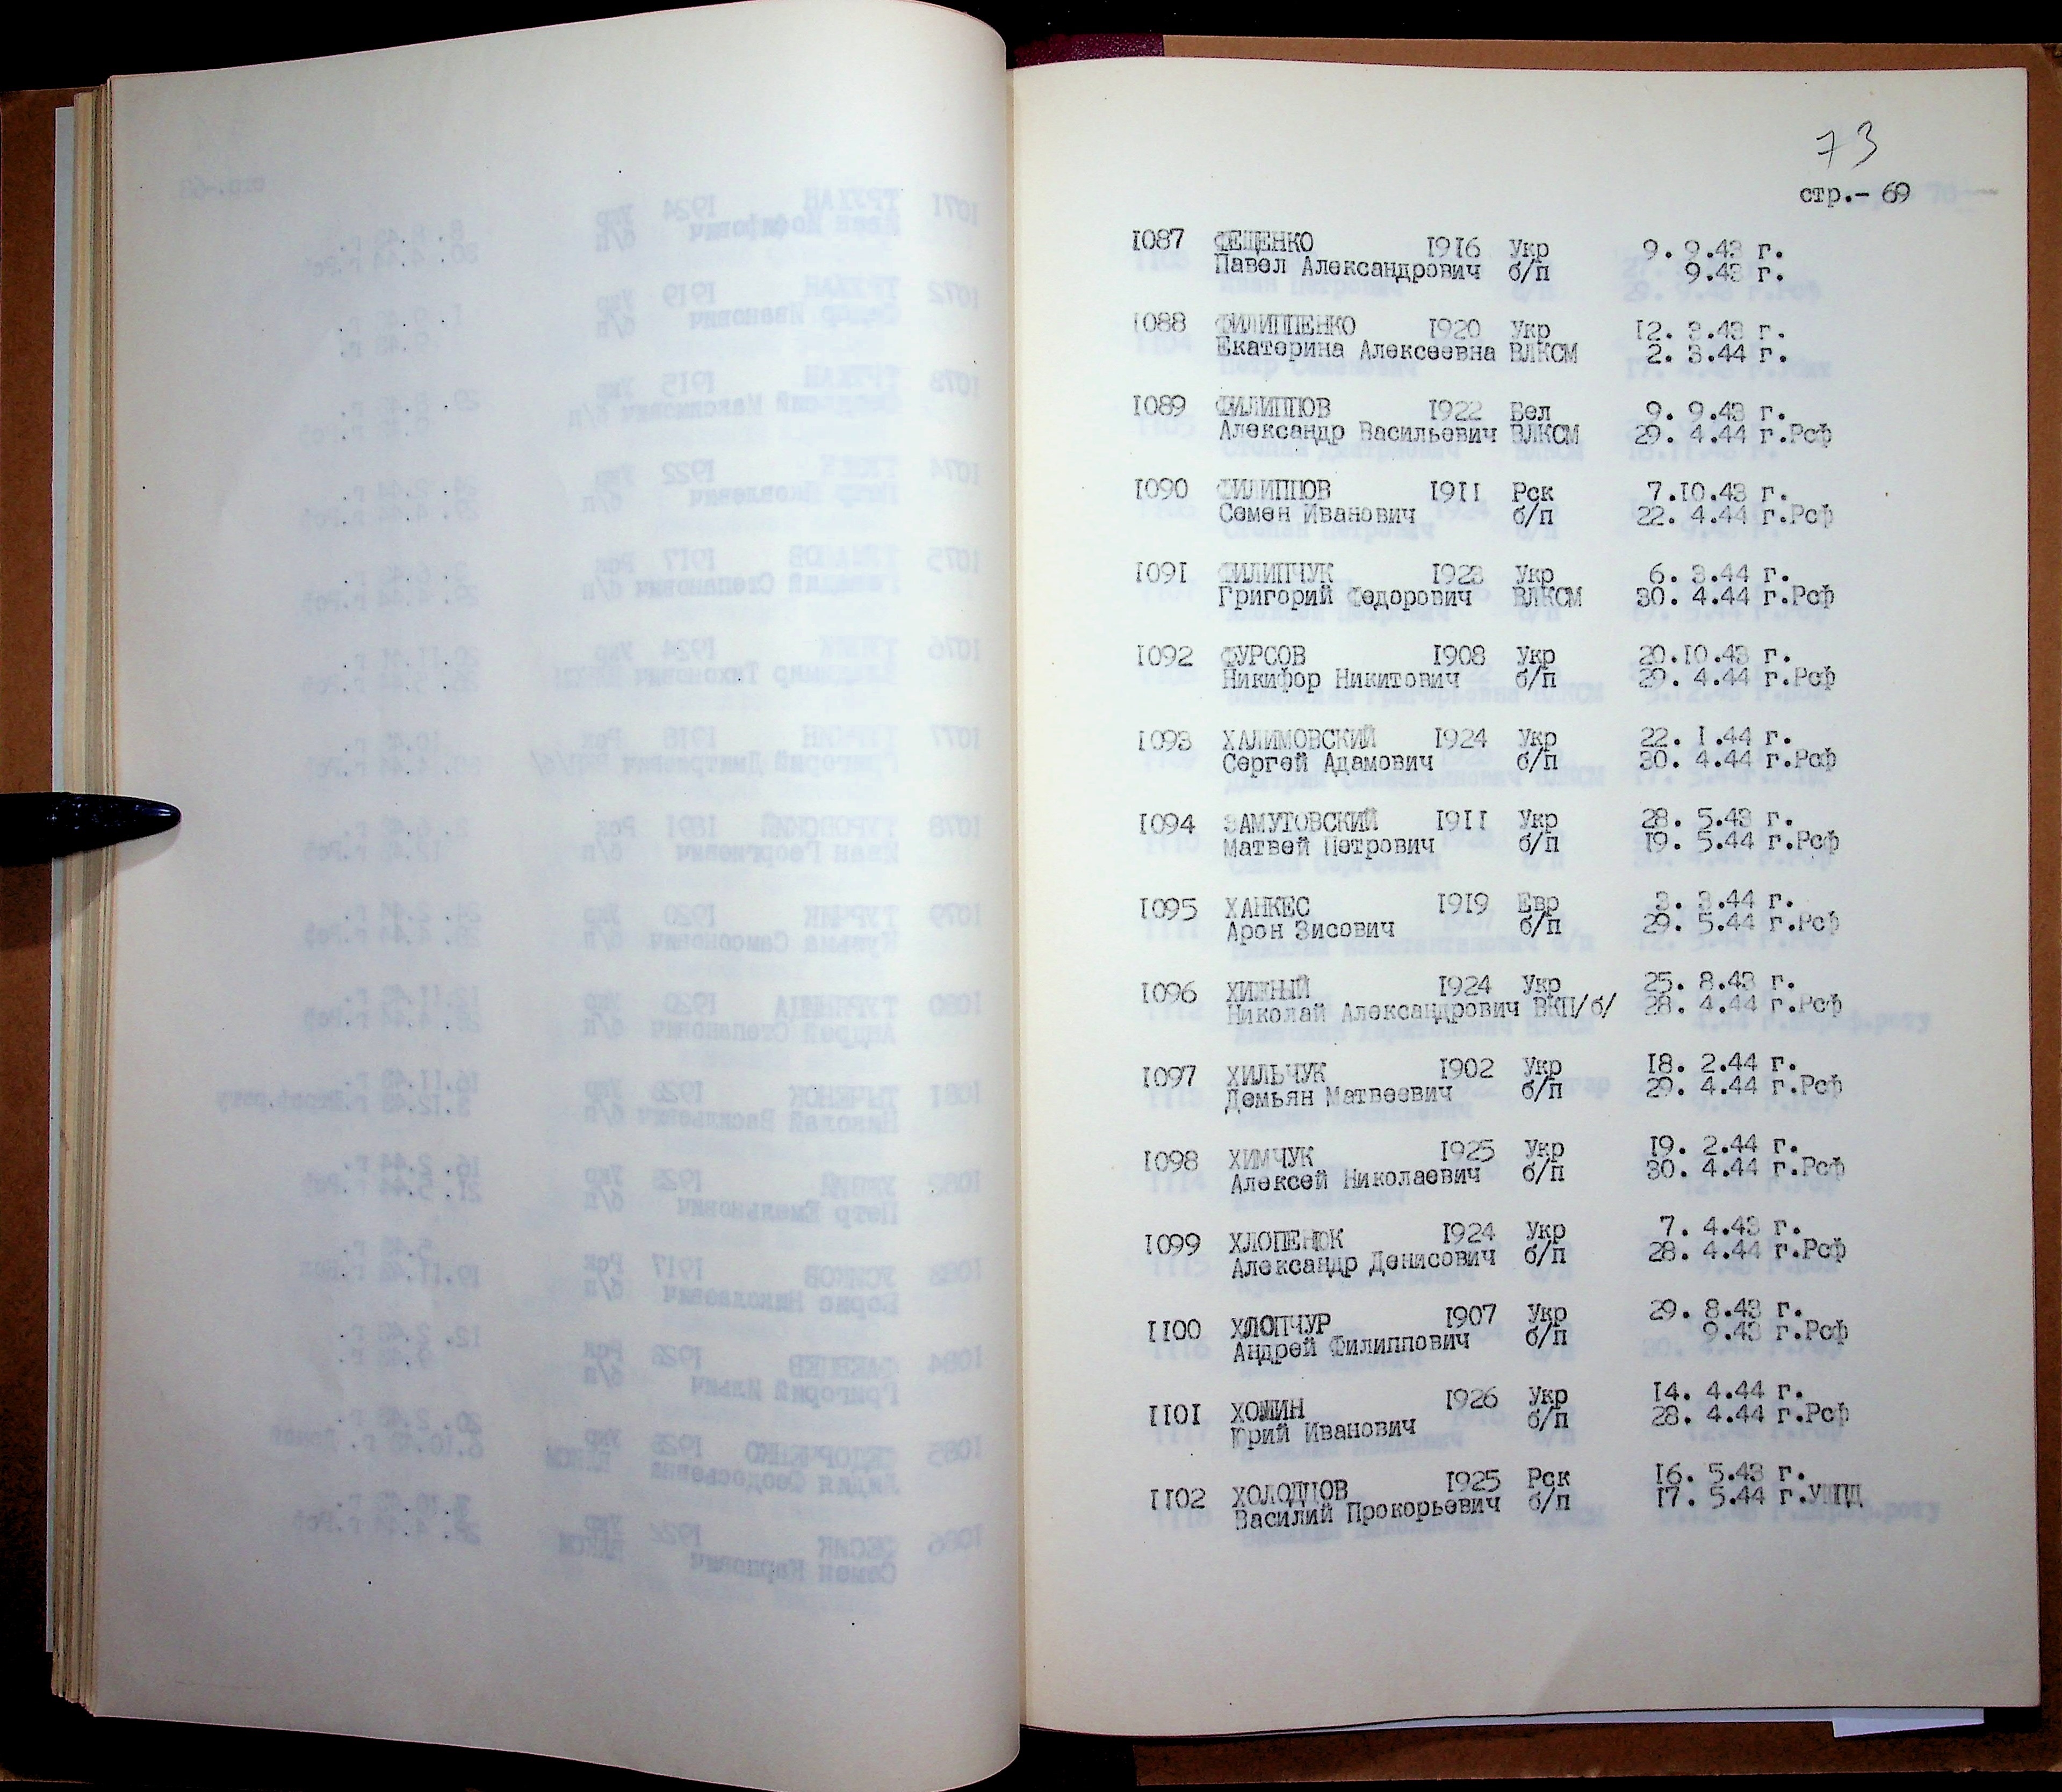 73
стр.- 69
1087 ФЕЩЕНКО 1916 Укр 9. 9.43 г.
Павел Александрович б/п 9.43 г.
1088 ФИЛИППЕНКО 1920 Укр 12. 3.43 г.
Екатерина Алексеевна ВЛКСМ 2. 3.44 г.
1089 ФИЛИППОВ 1922 Бел 9. 9.43 г.
Александр Васильевич ВЛКСМ 29. 4.44 г.Рсф
1090 ФИЛИППОВ 1911 Рск 7.10.43 г.
Семен Иванович б/п 22. 4.44 г.Рсф
1091 ФИЛИПЧУК 1923 Укр 6. 3.44 г.
Григорий Федорович ВЛКСМ 30. 4.44 г.Рсф
1092 ФУРСОВ 1908 Укр 20.10.43 г.
Никифор Никитович б/п 29. 4.44 г.Рсф
1093 ХАЛИМОВСКИЙ 1924 Укр 22. 1.44 г.
Сергей Адамович б/п 30. 4.44 г.Рсф
1094 ЗАМУТОВСКИЙ 1911 Укр 28. 5.43 г.
Матвей Петрович б/п 19. 5.44 г.Рсф
1095 ХАНКЕС 1919 Евр 3. 3.44 г.
Арон Зисович б/п 29. 5.44 г.Рсф
1096 ХИЖНЫЙ 1924 Укр 25. 8.43 г.
Николай Александрович ВКП/б/ 28. 4.44 г.Рсф
1097 ХИЛЬЧУК 1902 Укр 18. 2.44 г.
Демьян Матвеевич б/п 29. 4.44 г.Рсф
1098 ХИМЧУК 1925 Укр 19. 2.44 г.
Алексей Николаевич б/п 30. 4.44 г.Рсф
1099 ХЛОПЕНЮК 1924 Укр 7. 4.43 г.
Александр Денисович б/п 28. 4.44 г.Рсф
1100 ХЛОПЧУР 1907 Укр 29. 8.43 г.
Андрей Филиппович б/п 9.43 г.Рсф
1101 ХОМИН 1926 Укр 14. 4.44 г.
Юрий Иванович б/п 28. 4.44 г.Рсф
1102 ХОЛОДНОВ 1925 Рск 16. 5.43 г.
Василий Прокорьевич б/п 17. 5.44 г.УШПД